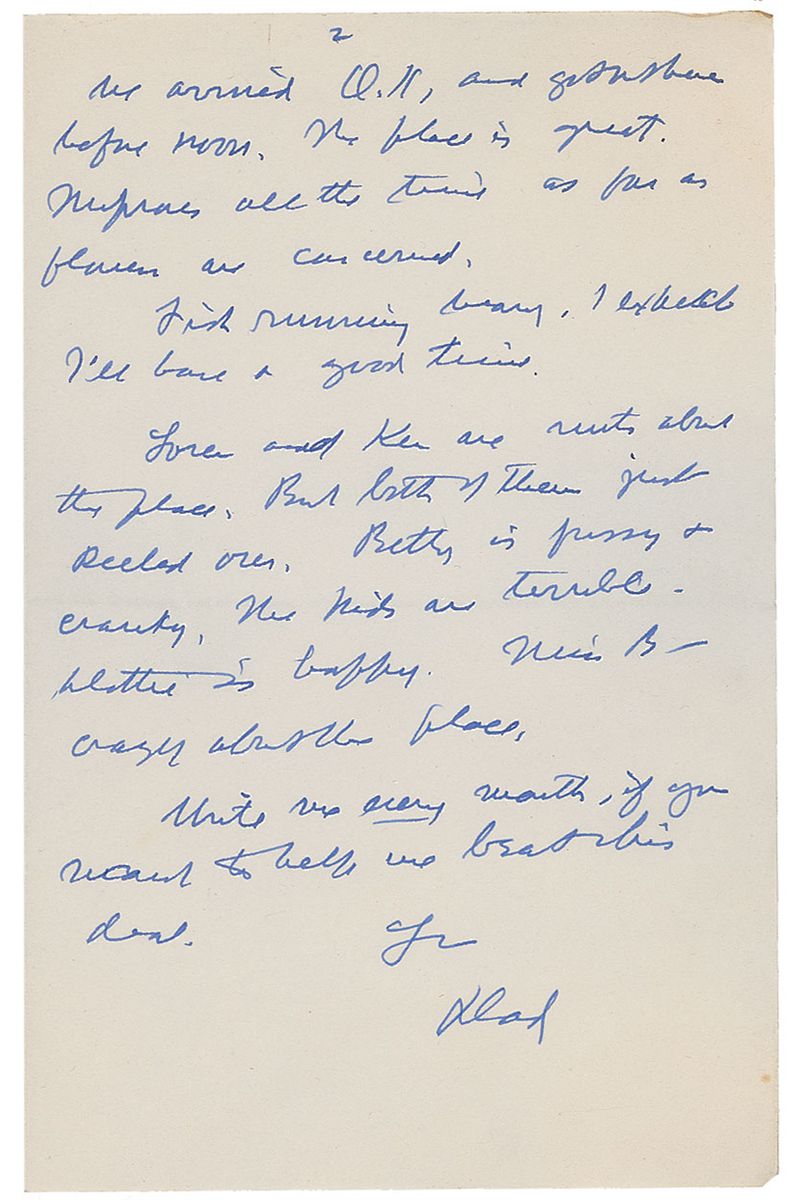 2
We arrived O.K, and got in there
before noon. The place is great.
Improves all the time as far as
flowers are concerned.
Fish running heavy. I expect
I'll have a good time.
Loren and Ken are nuts about
the place. But both of them just
peeled over. Betty is fussy &
cranky, The Kids are terrible.
is happy. Miss B—
crazy about the place.
Write me every month, if you
want to help me beat this
deal.
Dad